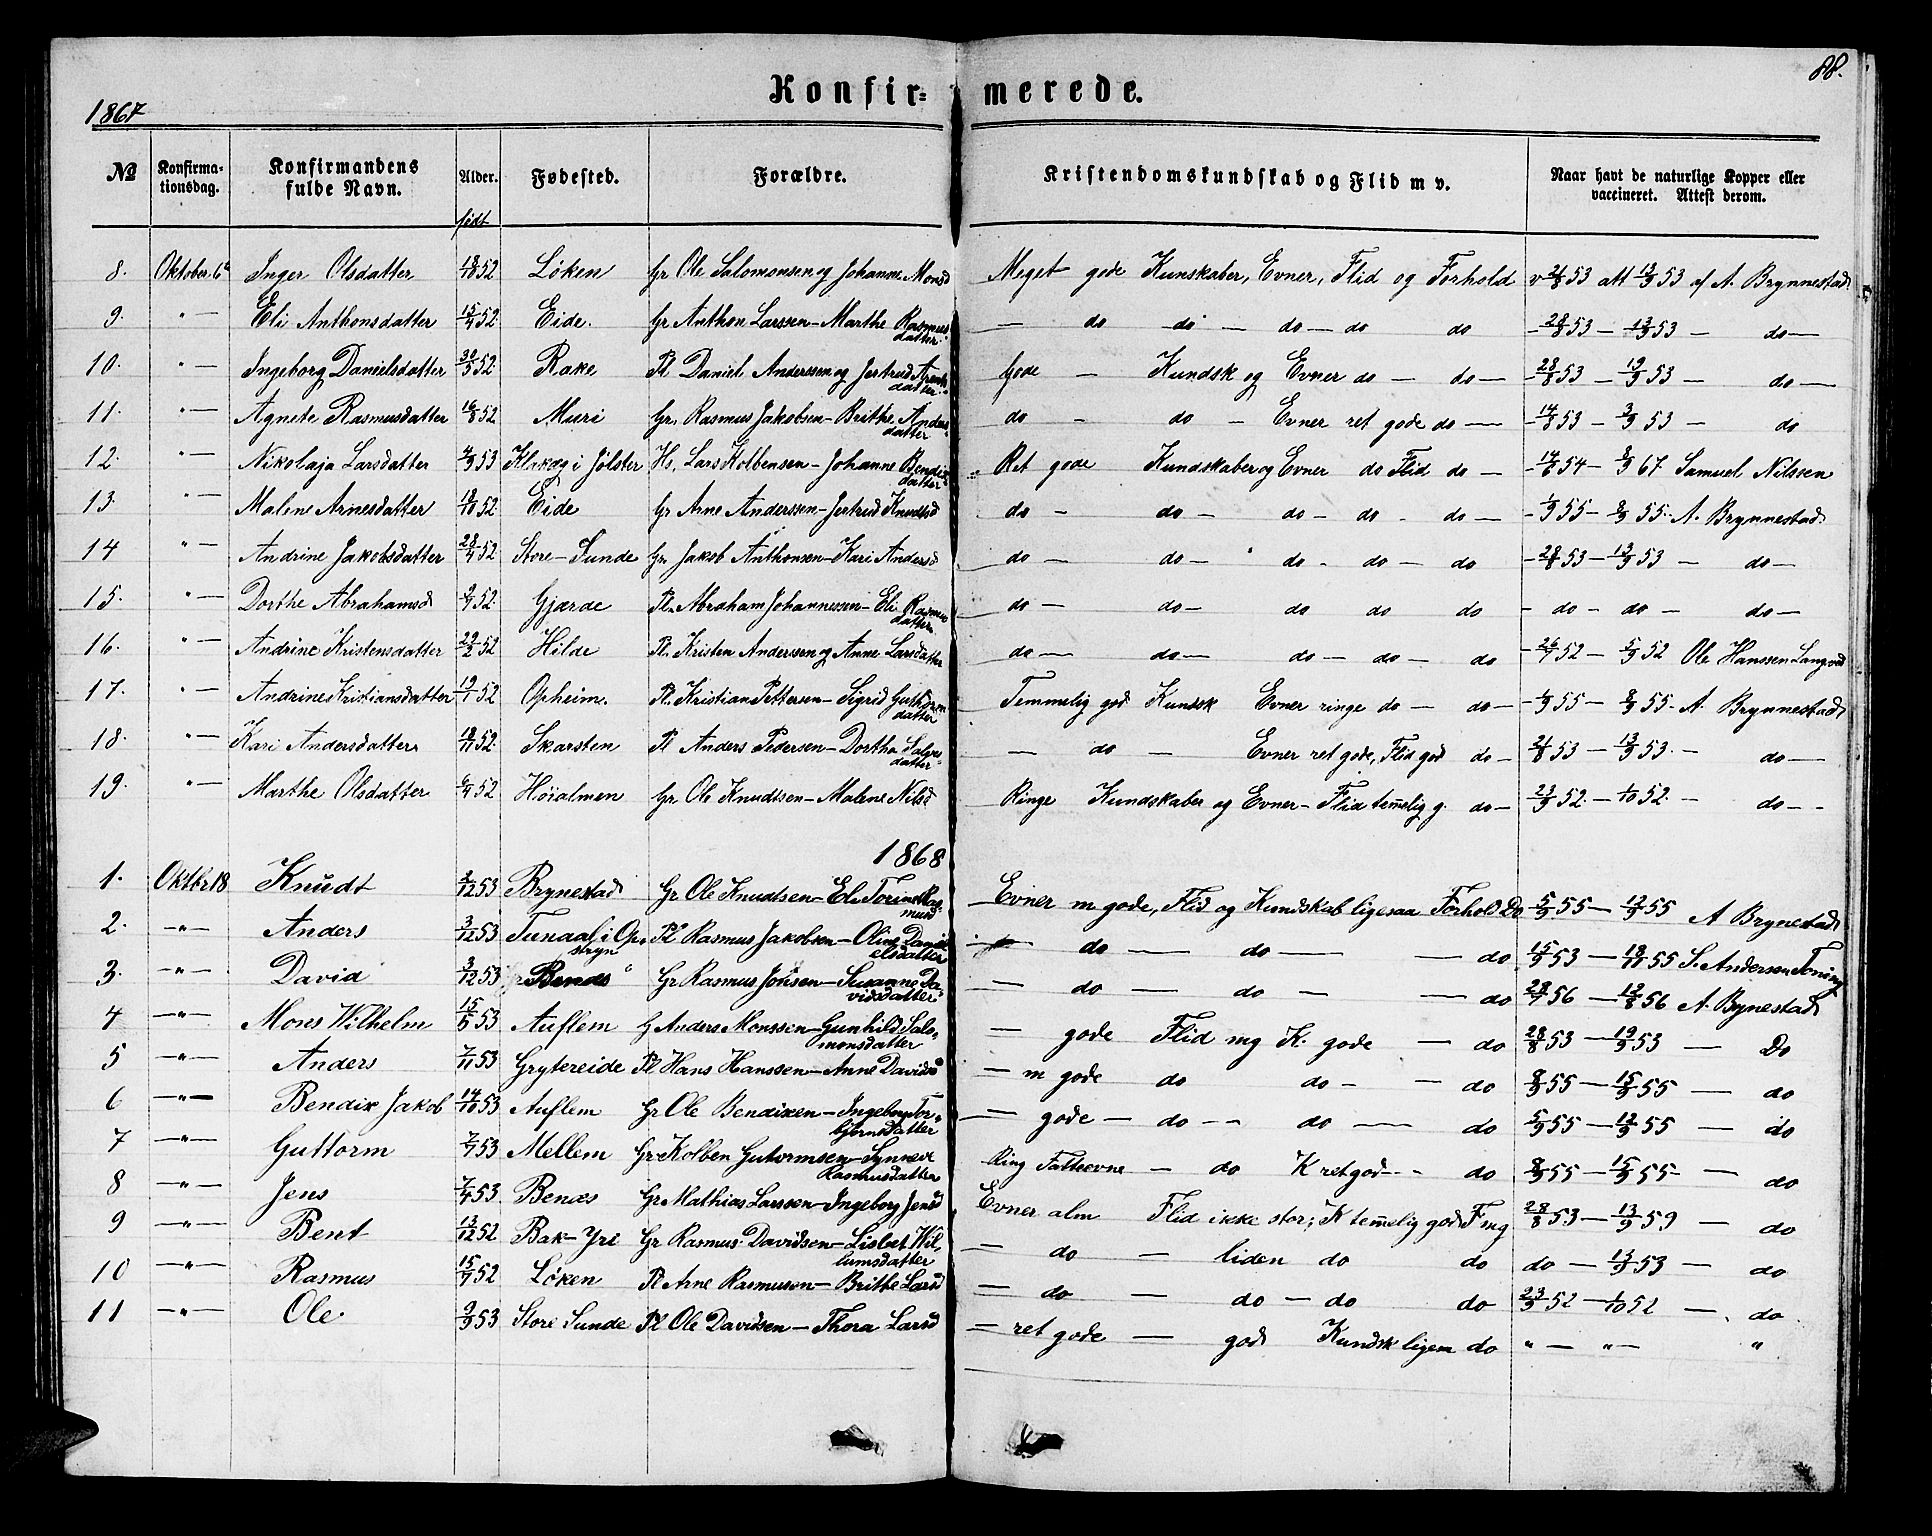 88.
Konfirmerede.
1867
No Konfirmationsdag. Konfirmandens fulde Navn. Alder. født Fødested. Forældre. Kristendomskundskab og Flid m v. Naar havt de naturlige Kopper eller vaccineret. Attest derom.
8. Oktober 6te Inger Olsdatter 18/10 52 Löken Gr Ole Salomonsen og Johanne Monsd Meget gode Kunskaber, Evner, Flid og Forhold v 21/8 53 att 13/9 53 af A. Brynnestad
9. " — Eli Anthonsdatter 15/4 52 Eide. Gr Anthon Larssen — Marthe Rasmusdatter — do do — do — do do — 28/8 53 — 13/9 53 — do —
10. " — Ingeborg Danielsdatter 30/5 52 Rake Pl Daniel Anderssen og Jertrud datter Gode — Kundsk og Evner do — do — 28/8 53 — 19/9 53 — do —
11. " — Agnete Rasmusdatter 16/8 52 Muri Gr. Rasmus Jakobsen — Brithe Andersdatter do — do — Evner ret gode do — 14/8 53 — 3/9 53 — do
12. " — Nikolaja Larsdatter 4/9 53 Klakeg i Jölster Hs. Lars Kolbensen — Johanne Bendixdatter Ret gode Kundskaber og Evner do Flid do — 14/8 54 — 8/9 67 Samuel Nilssen
13. " — Malene Arnesdatter 18/10 52 Eide Gr Arne Anderssen — Jertrud Knudtsd do — do — do — do — do — 1/9 55 — 8/9 55. A. Brynnestad
14 " — Andrine Jakobsdatter 28/4 52 Store-Sunde Gr Jakob Anthonsen — Kari Andersd do — do — do — do — do — 28/8 53 — 13/9 53 — do —
15. " — Dorthe Abrahamsd 9/7 52. Gjærde Pl. Abraham Johannessen — Eli Rasmusdatter do — do — do do do — do — do — do —
16. " — Andrine Kristensdatter 29/2 52 Hilde Pl. Kristen Anderssen og Anne Larsdatter do — do — do — do — do — 26/7 52 — 5/9 52 Ole Hanssen Langved
17. " — Andrine Kristiansdatter 19/1 52 Opheim. Pl. Kristian Pettersen — Sigrid Guthormdatter Temmelig god Kundsk Evner ringe do — do — 1/9 55 — 8/9 55. A. Brynnestad
18. " — Kari Andersdatter 18/11 52. Skarsten Pl Anders Pedersen — Dorthe datter — do — Evner ret gode, Flid god do — 21/8 53 — 13/9 53. — do —
19. " — Marthe Olsdatter 6/4 52 Höialmen Gr Ole Knudtsen — Malene Nilsd Ringe Kundskaber og Evner — Flid temelig g. do — 23/9 52. — 1/10 52. — do —
1868
1. Oktbr 18 Knudt 2/12 53 Brynestad Gr Ole Knudtsen — Eli Torine Rasmusd Evner m gode, Flid og Kundskab ligesaa Forhold Do 5/9 55 — 12/9 55 A Brynestad
2. — " — Anders 3/12 53 Tunaal i Opstryn Pl Rasmus Jakobsen — Oline Danielsdatter do — do — — do 15/9 53 — 18/11 55 S. Andersen Toning
3. — " — David 3/12 53 Benæs Gr Rasmus Jonsen — Susanne Davidsdatter — do — do — — do 28/7 56 — 12/8 56 A. Brynestad
4 — " — Mons Wilhelm 15/5 53 Auflem G Anders Monssen — Gunhild Salomonsdatter — gode Flid mg K. gode — do 28/8 53 — 19/9 53 — Do
5 — " — Anders 7/11 53 Grytereide Pl Hans Hanssen — Anne Davidsd — m gode do do — — do 8/9 55 — 15/9 55 — do
6 — " — Bendix Jakob 14/10 53 Auflem Gr Ole Bendixen — Ingeborg Torbjörnsdatter — gode — do — do — do 5/9 55 — 12/9 55 — do
7 — " — Guttorm 7/9 53 Mellem Gr Kolben Gutormsen — Synneve Rasmusdatter Ring Fatteevne — do K ret god — do 8/9 55 — 15/9 55 — do
8 — " — Jens 7/4 53. Benæs Gr Mathias Larssen — Ingeborg Jensd Evner alm Flid ikke stor; K temelig god F mg 28/8 53 — 13/9 59 — do
9 — " — Bent 13/12 52 Bak-Yri Gr Rasmus Davidsen — Lisbet Willumsdatter — do — liden do do do — 13/9 53 — do
10 — " — Rasmus 15/7 52 Löken Pl Arne Rasmusen — Brithe Larsd — do — do — do do 23/9 52 — 1/10 52 — do
11 — " — Ole 9/9 53 Store Sunde Pl Ole Davidsen — Thora Larsd — ret gode — god Kundsk ligesa do " — " — "